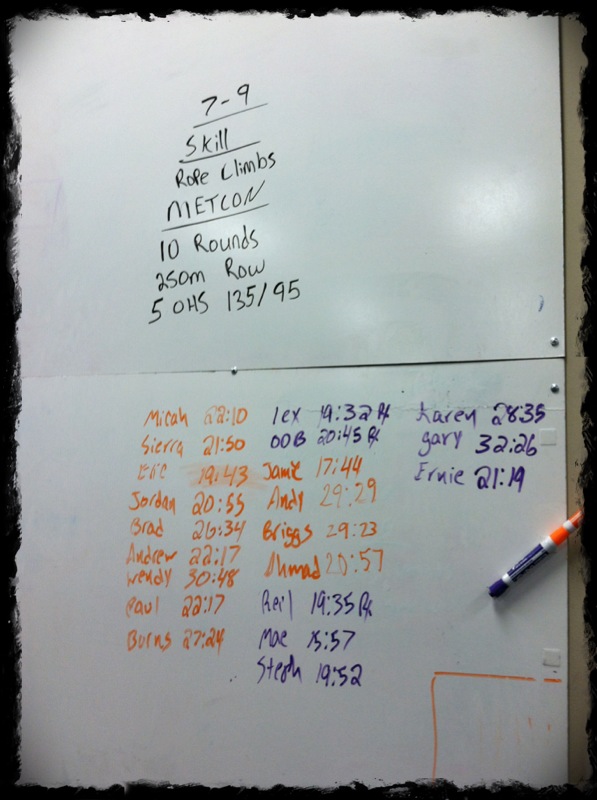 7-9
Skill
Rope Climbs
METCON
10 Rounds
250m Row
5 OHS 135/95
Micah 22:10
Sierra 21:50
Eric 19:43
Jordan 20:55
Brad 26:34
Andrew 22:17
Wendy 30:48
Paul 22:17
Burns 27:24
lex 19:32 Rx
OOB 20:45 Rx
Jamie 17:44
Andy 29:29
Briggs 29:23
Ahmad 20:57
19:35 Rx
Mae 15:57
Steph 19:52
Karen 28:35
gary 32:26
Ernie 21:19